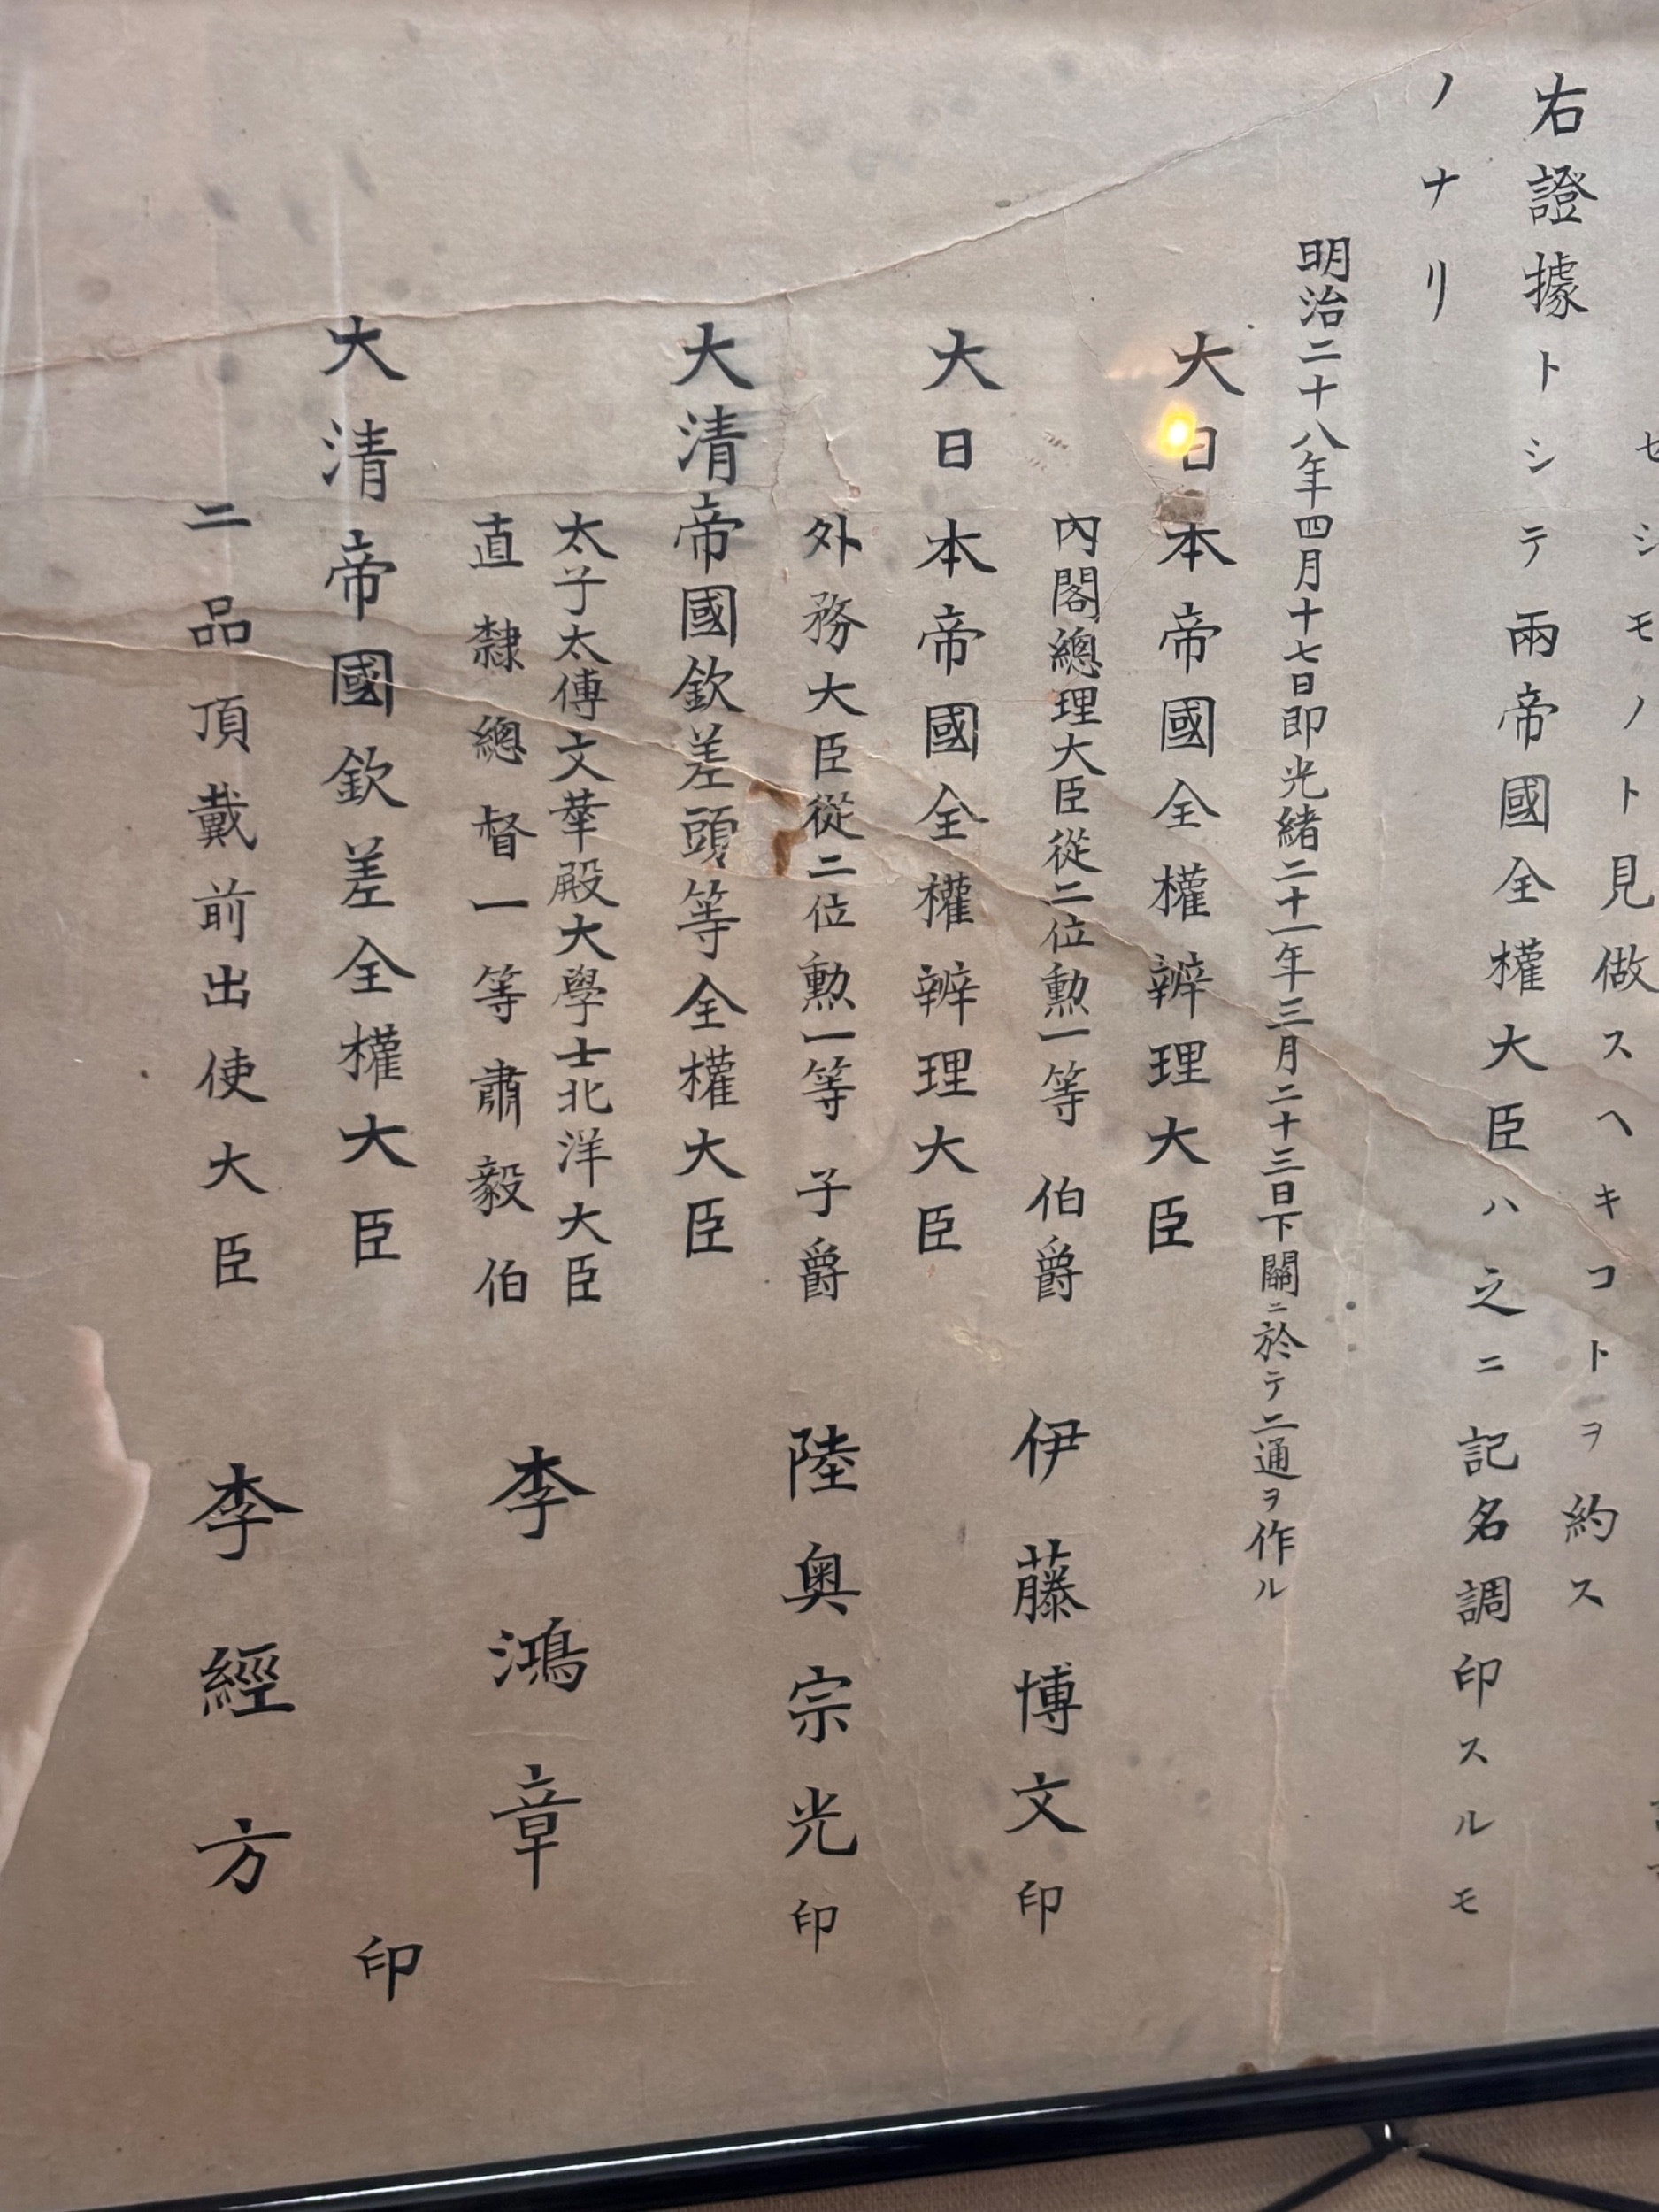 セシモノト見做スヘキコトヲ約ス
右證據トシテ兩帝國全權大臣ハ之ニ記名調印スルモ
ノナリ
明治二十八年四月十七日即光緒二十一年三月二十三日下關ニ於テ二通ヲ作ル
大日本帝國全權辨理大臣
內閣總理大臣從二位勳一等 伯爵 伊藤博文 印
大日本帝國全權辨理大臣
外務大臣從二位勳一等 子爵 陸奥宗光 印
大清帝國欽差頭等全權大臣
太子太傅文華殿大學士北洋大臣
直隸總督一等肅毅伯 李鴻章
大清帝國欽差全權大臣 印
二品頂戴前出使大臣 李經方